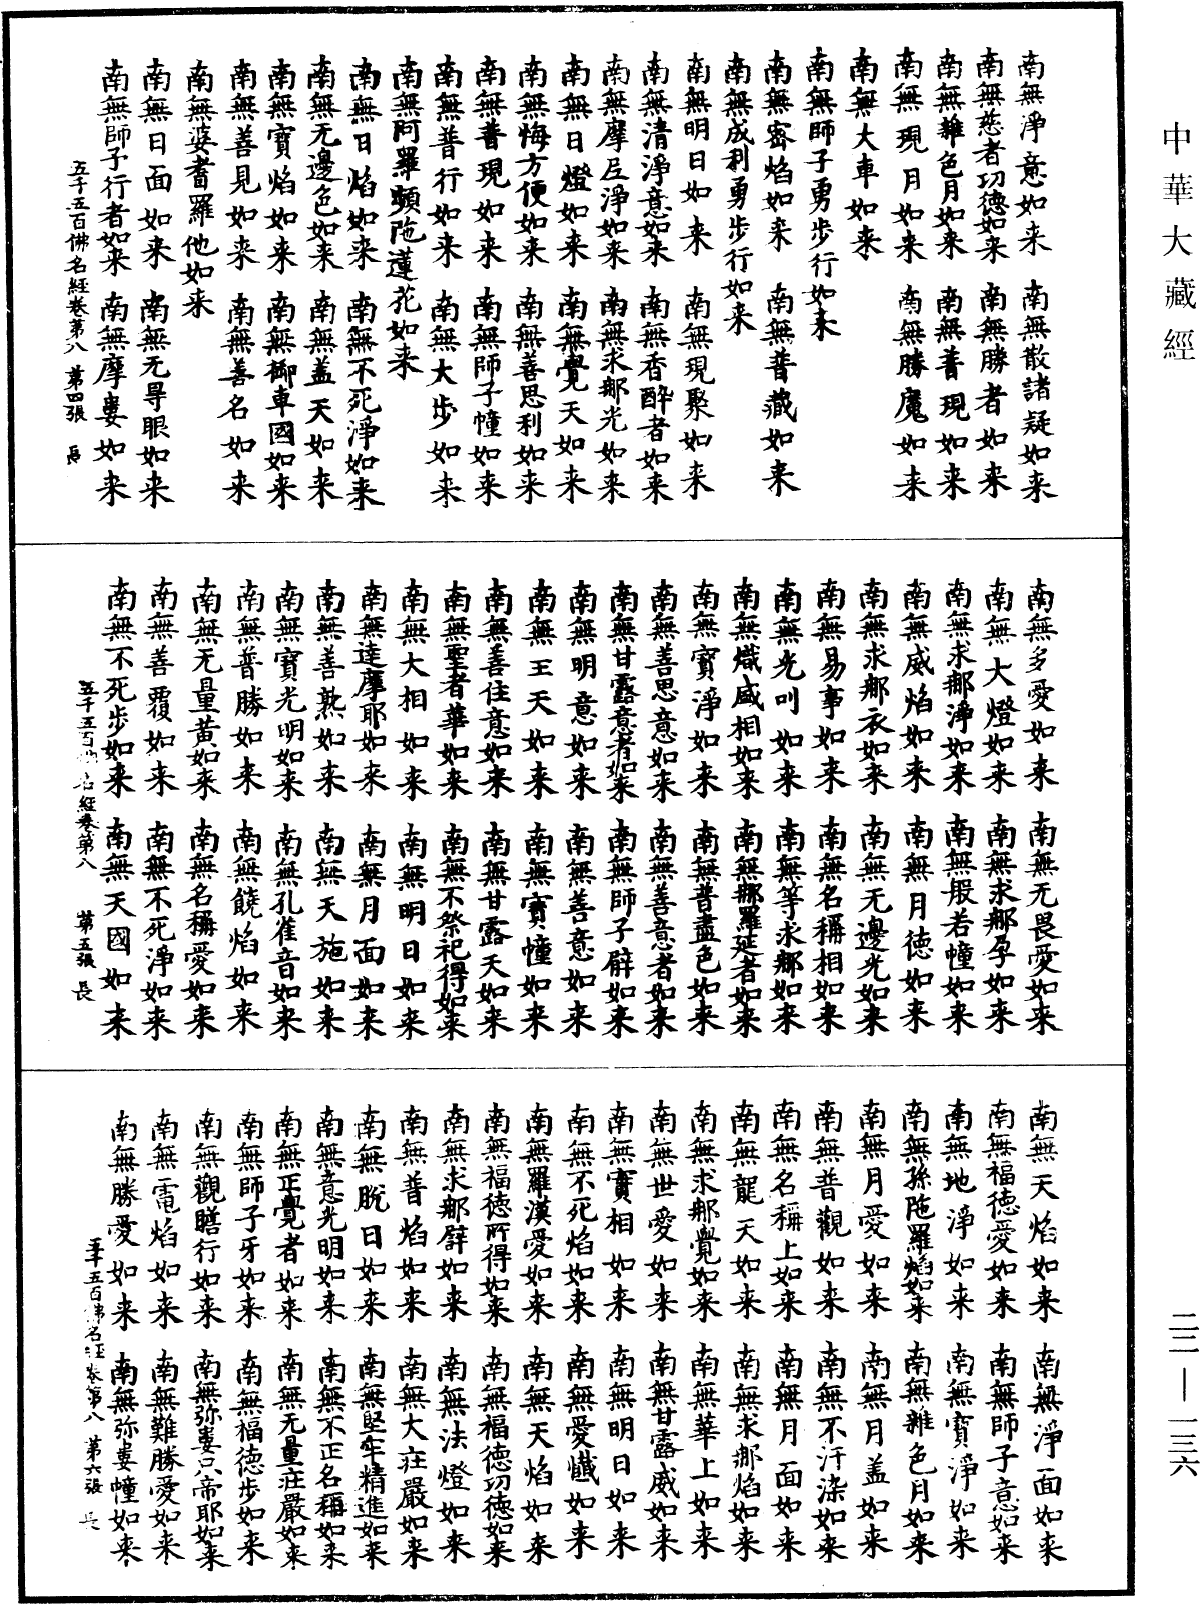 中華大藏經
南無淨意如来　南無散諸疑如来
南無慈者功德如来　南無勝者如来
南無雜色月如来　南無普現如来
南無現月如来　南無勝魔如来
南無大車如来
南無師子勇步行如来
南無密焰如来　南無普藏如来
南無成利勇步行如来
南無明日如来　南無現聚如来
南無清淨意如来　南無香醉者如来
南無摩尼淨如来　南無求那光如来
南無日燈如来　南無覺天如来
南無悔方便如来　南無善思利如来
南無普現如来　南無師子幢如来
南無普行如来　南無大步如来
南無阿羅頻陁蓮花如来
南無日焰如来　南無不死淨如来
南無无邊色如来　南無盖天如来
南無寶焰如来　南無御車國如来
南無善見如来　南無善名如来
南無婆耆羅他如来
南無日面如来　南無无㝵眼如来
南無師子行者如来　南無摩婁如来
五千五百佛名經卷第八　第四張　長
南無多愛如来　南無无畏愛如来
南無大燈如来　南無求那孕如来
南無求那淨如来　南無般若幢如来
南無威焰如来　南無月德如来
南無求那衣如来　南無无邊光如来
南無易事如来　南無名稱相如来
南無光叫如来　南無等求那如来
南無熾威相如来　南無那羅延者如来
南無寶淨如来　南無普盡色如来
南無善思意如来　南無善意者如来
南無甘露意者如来　南無師子臂如来
南無明意如来　南無善意如来
南無王天如来　南無寶幢如来
南無善住意如来　南無甘露天如来
南無聖者華如来　南無不祭祀得如来
南無大相如来　南無明日如来
南無達摩耶如来　南無月面如来
南無善熟如来　南無天施如来
南無寶光明如来　南無孔雀音如来
南無普勝如来　南無饒焰如来
南無无量黄如来　南無名稱愛如来
南無善覆如来　南無不死淨如来
南無不死步如来　南無天國如来
五千五百佛名經卷第八　第五張　長
南無天焰如来　南無淨面如来
南無福德愛如来　南無師子意如来
南無地淨如来　南無寶淨如来
南無孫陁羅焰如来　南無雜色月如来
南無月愛如来　南無月盖如来
南無普觀如来　南無不汙染如来
南無名稱上如来　南無月面如来
南無龍天如来　南無求那焰如来
南無求那覺如来　南無華上如来
南無世愛如来　南無甘露威如来
南無寶相如来　南無明日如来
南無不死焰如来　南無愛懺如来
南無羅漢愛如来　南無天焰如来
南無福德所得如来　南無福德功德如来
南無求那臂如来　南無法燈如来
南無普焰如来　南無大莊嚴如来
南無脫日如来　南無堅牢精進如来
南無意光明如来　南無不正名稱如来
南無正覺者如来　南無无量莊嚴如来
南無師子牙如来　南無福德步如来
南無觀瞻行如来　南無弥婁只帝耶如来
南無電焰如来　南無難勝愛如来
南無勝愛如来　南無弥婁幢如来
五千五百佛名經卷第八　第六張　長
二二—一三六